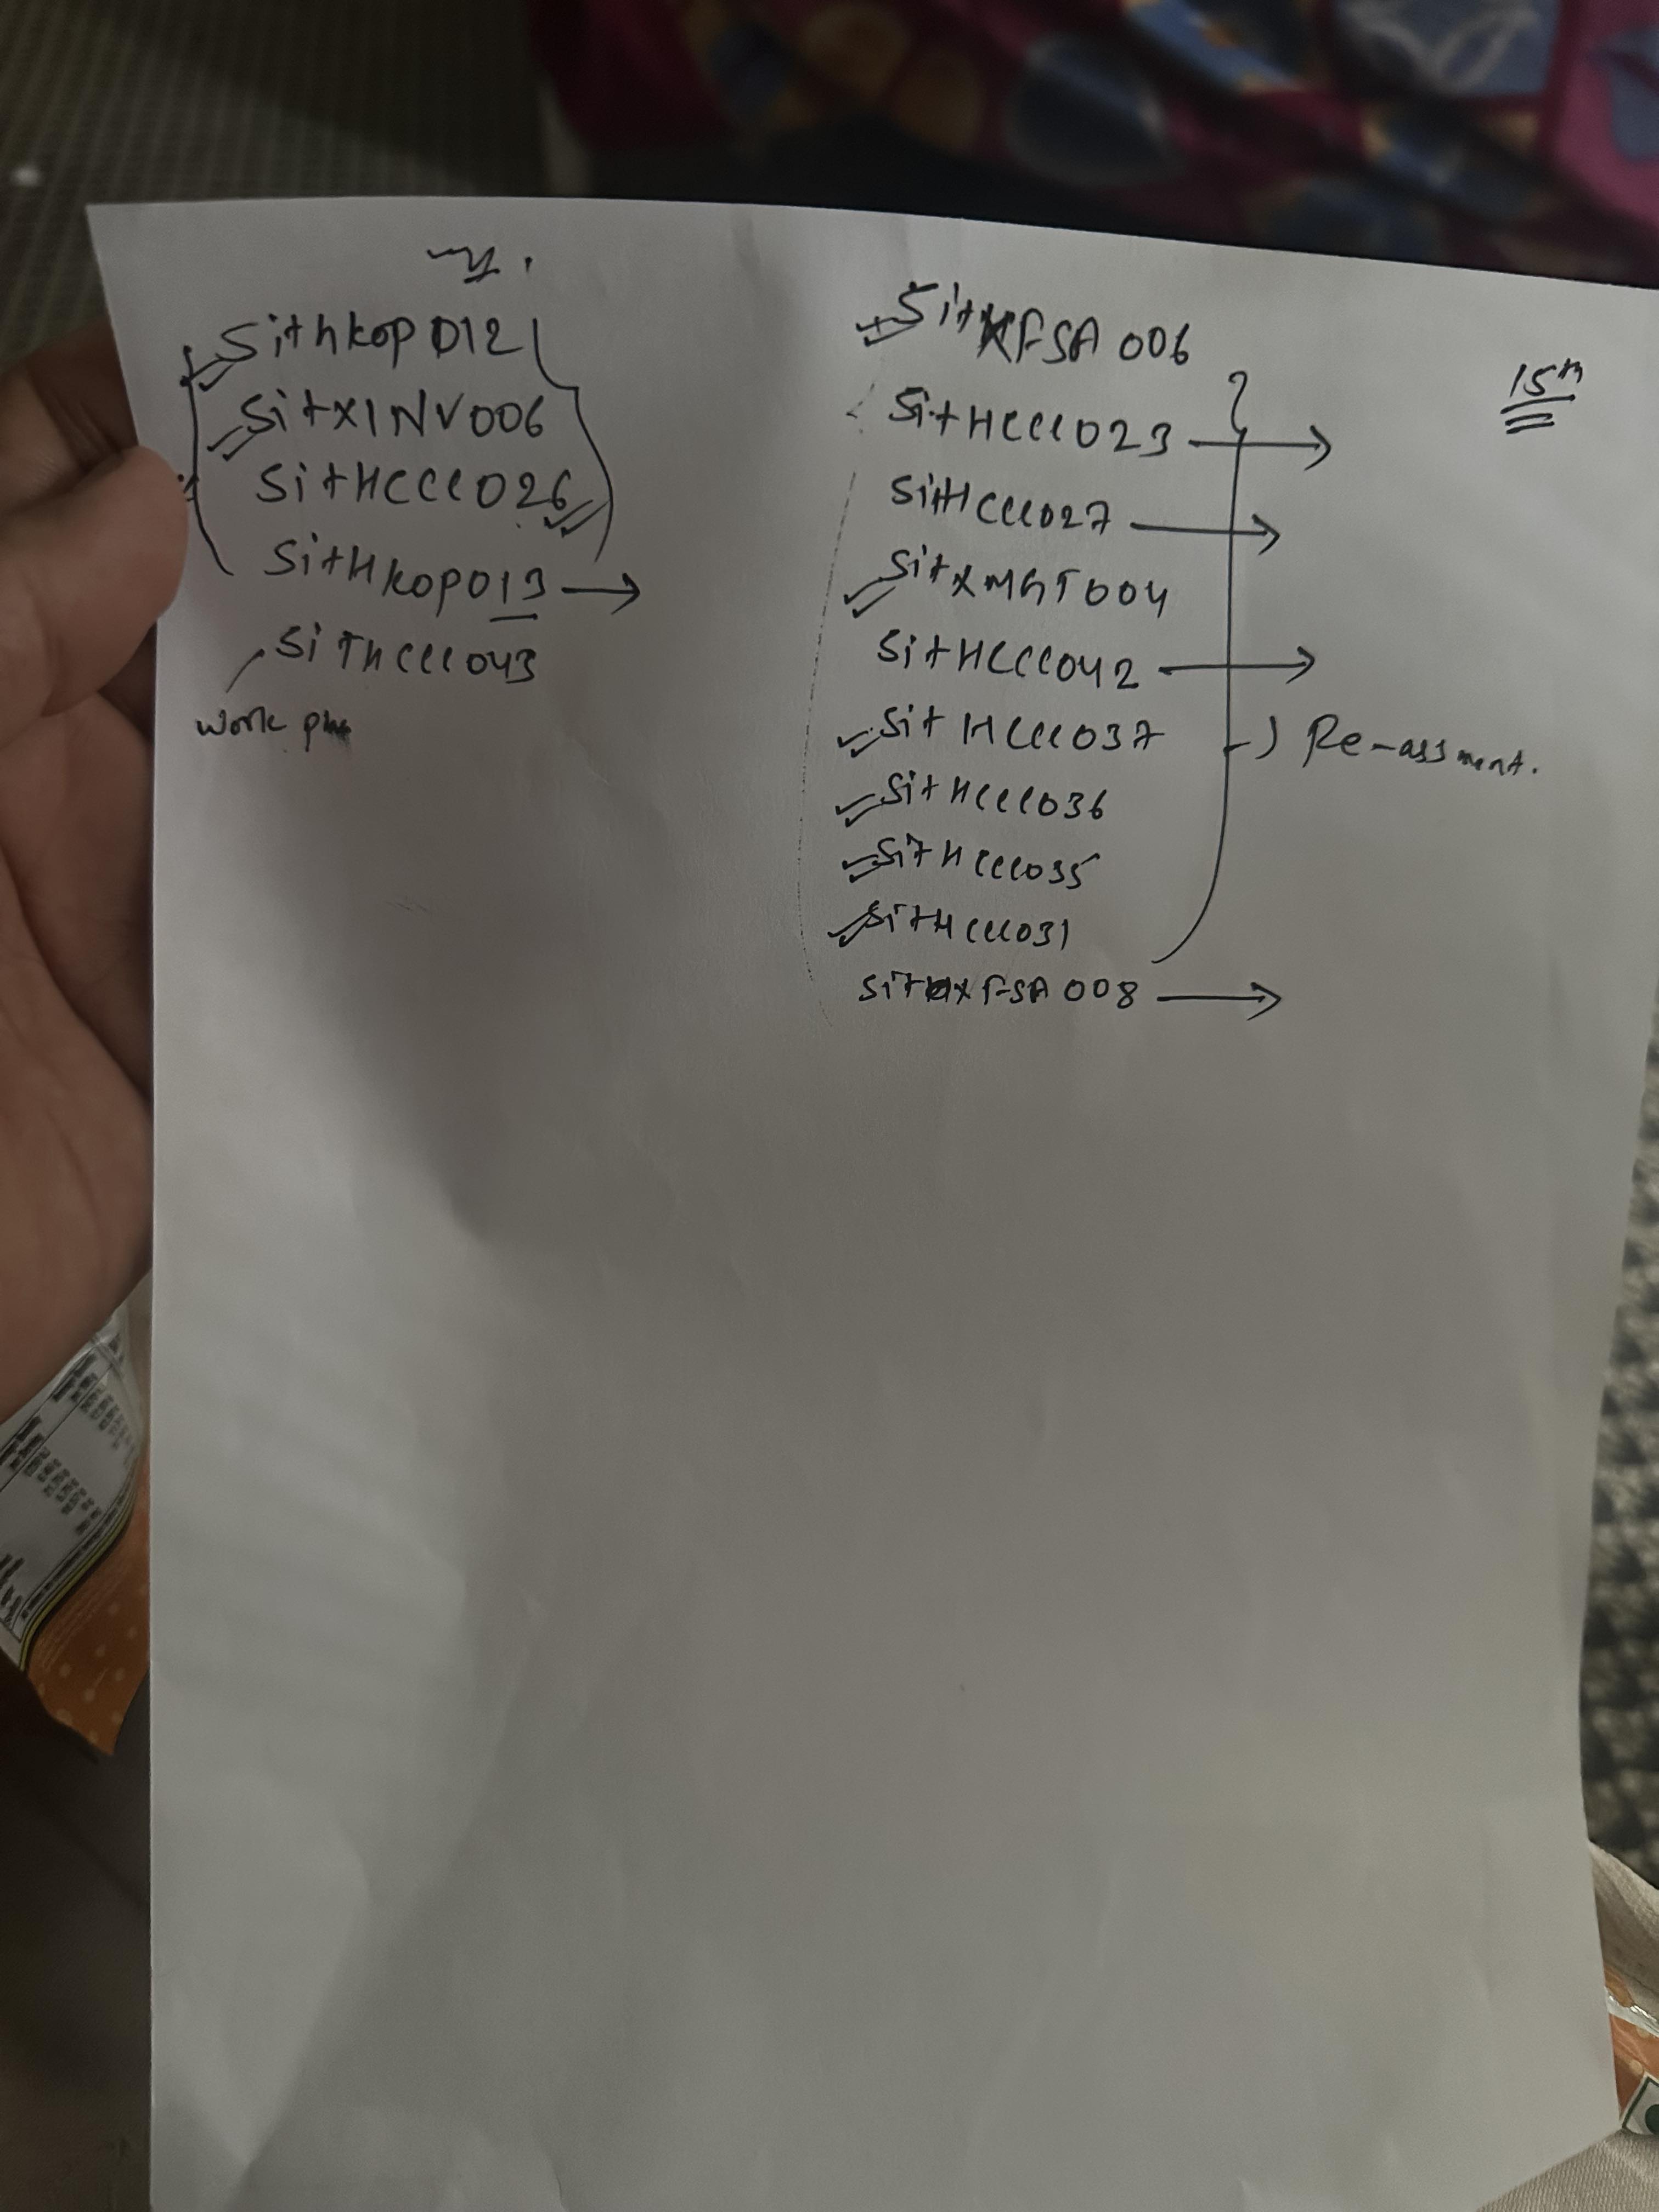 Sithkop012
SitXINV006
SitHCCC026
SitHkop013 →
SiTHCCC043
work
SitXFSA 006
SitHCCC023 →
SitHCCC027 →
SitXMGT004
SitHCCC042 →
Sit HCCC037
SitHCCC036
SitHCCC035
SitHCCC031
SitXFSA 008 →
15th
Re-assment.